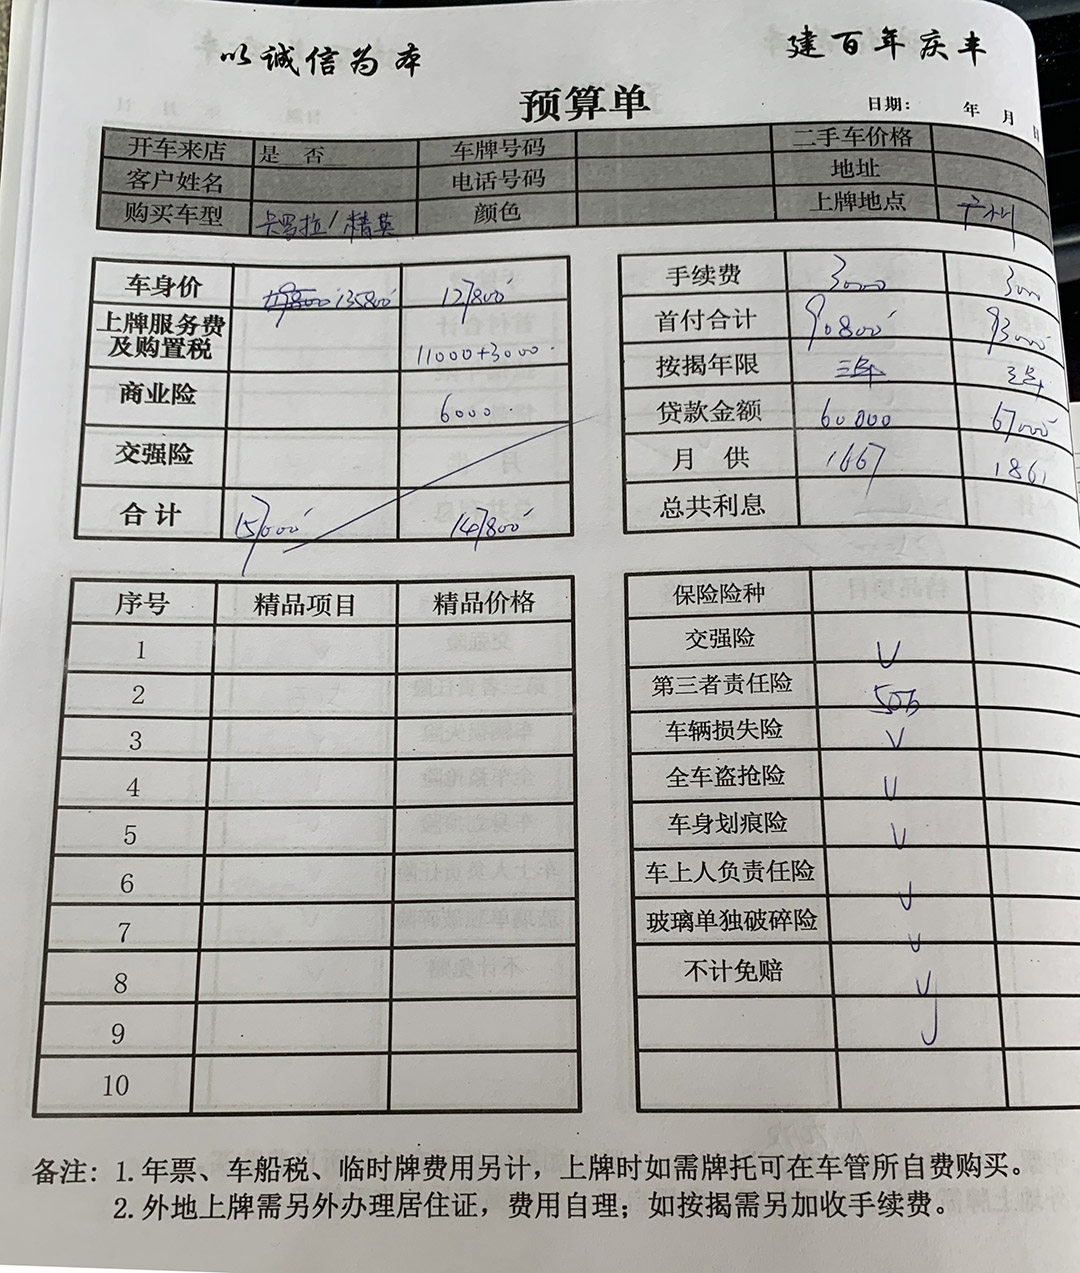 以诚信为本
建百年庆丰
预算单
日期： 年 月 日
开车来店 是 否 车牌号码 二手车价格
客户姓名 电话号码 地址
购买车型 卡罗拉/精英 颜色 上牌地点 广州
车身价 135800 127800
上牌服务费
及购置税 11000+3000
商业险 6000
交强险
合计 157000 147800
手续费 3000 3000
首付合计 90800 93000
按揭年限 三年 三年
贷款金额 60000 67000
月 供 1667 1861
总共利息
序号 精品项目 精品价格
1
2
3
4
5
6
7
8
9
10
保险险种
交强险 √
第三者责任险 50万
车辆损失险 √
全车盗抢险 √
车身划痕险 √
车上人负责任险 √
玻璃单独破碎险 √
不计免赔 √
备注：1.年票、车船税、临时牌费用另计，上牌时如需牌托可在车管所自费购买。
2.外地上牌需另外办理居住证，费用自理；如按揭需另加收手续费。